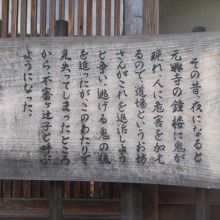 その昔、夜になると
元興寺の鐘楼に鬼が
現れ人に危害を加え
るので、道場というお坊
さんがこれを退治しよう
と争い、逃げる鬼の後
を追ったが、このあたりで
見失ってしまったところ
から不審ヶ辻子と呼ぶ
ようになった。